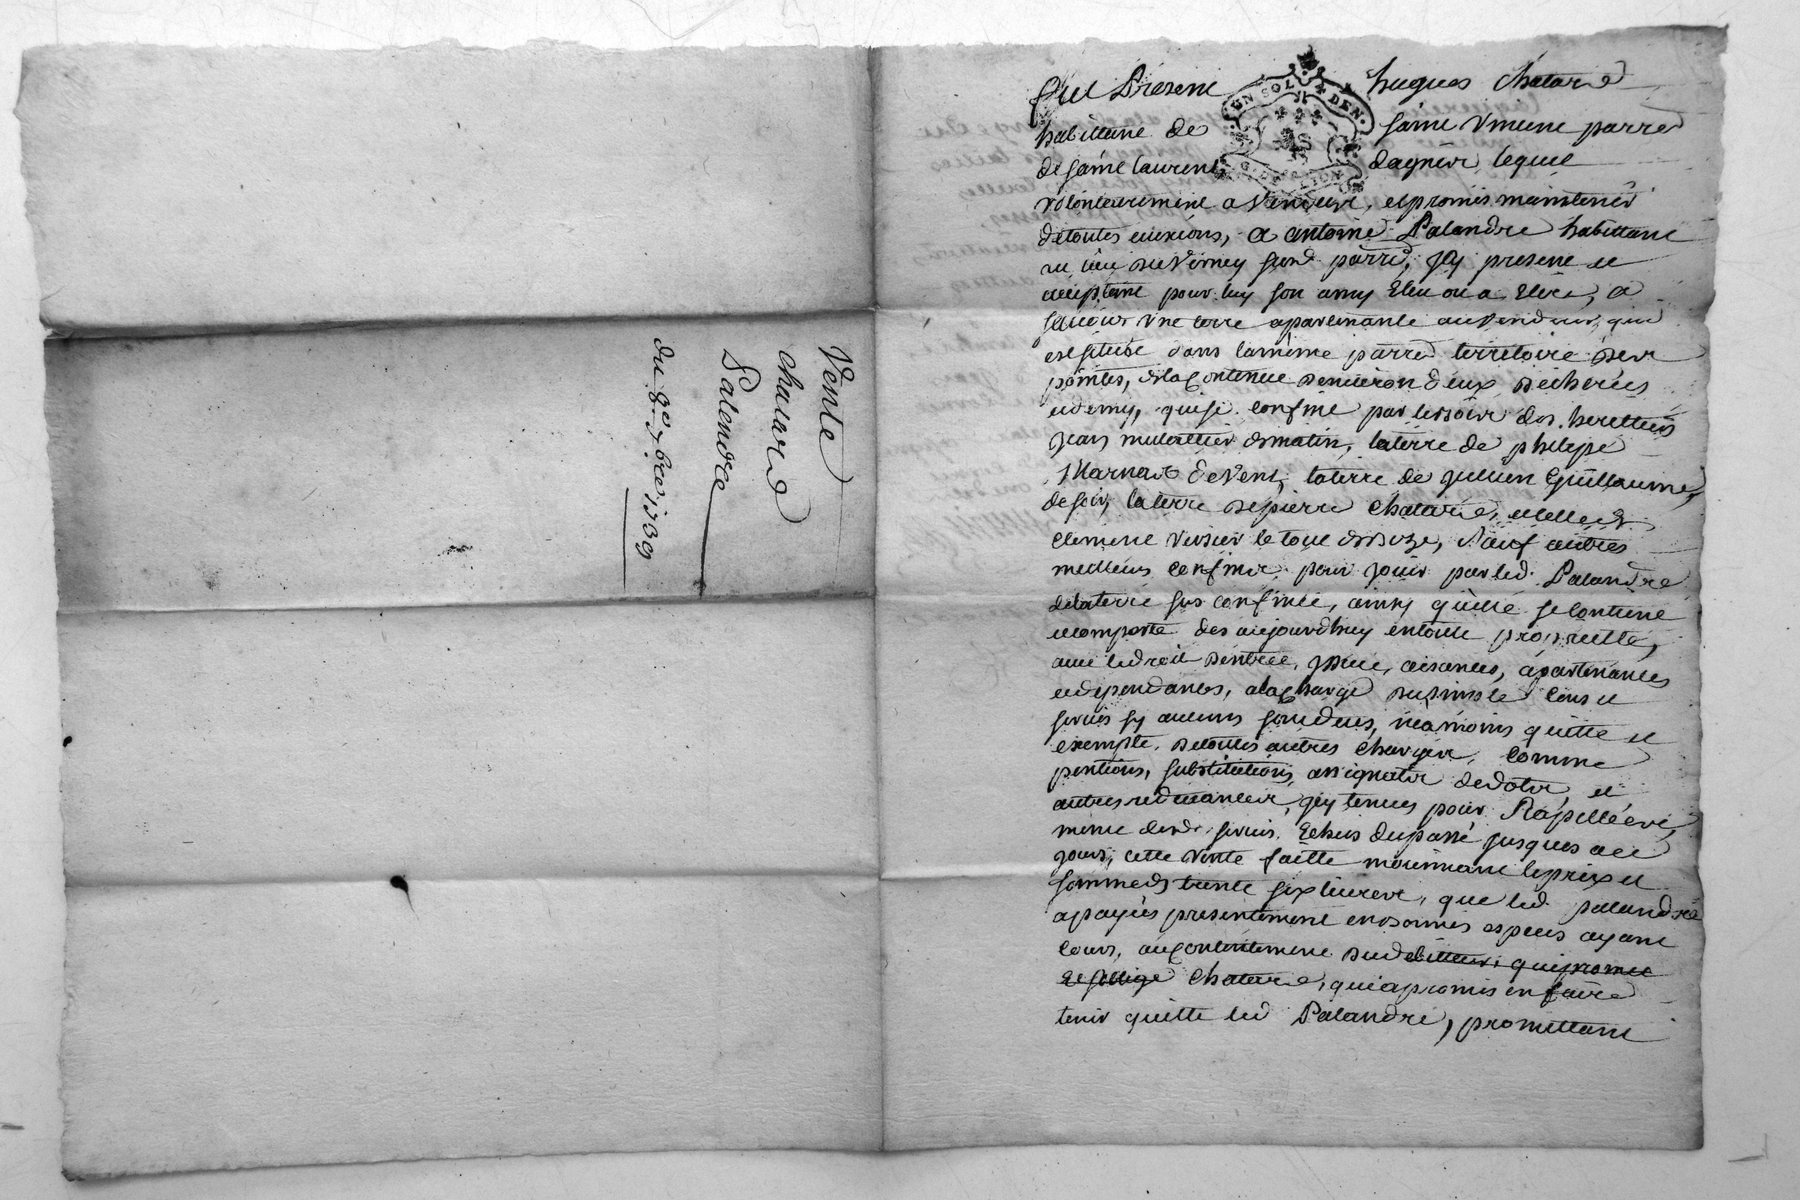 Vente
chatard
Palendre
du 9e 7bre 1739
fut Présent hugues Chatard
habittant de saint vincent parre
de saint laurent dagnier, lequel
volontairement a vendeu, et promis maintenir
de toutes euixions, a antoine Palandre habittant
au lieu du Verney susd parre, jcy present et
acceptant pour luy son amy Eleu ou a Elire, a
scauoir vne terre apartenante au vendeur, qui
est situeé dans la meme parre territoire des
pointes, de la contenue denuiron deux bicherées
et demy, qui se confine par les terre des herettiers
jean matin, la terre de philipe
de vent, la terre de julien Guillaume,
de soir, la terre de pierre Chatard, et celle de
Clement de bize, sauf autres
meilleurs confins, pour jouir par led. Palandre
de la terre sus confineé, ainsy quelle se contient
et comporte des aujourdhuy en toute proprietté,
auec les droit dentreé, jssue, aisances, apartenances
et dependances, a la charge du simple cens et
seruis sy aucuns sont dues, neamoins quitte et
exempte de touttes autres charges, comme
pentions, substitutions, assignats de dots, et
autres redeuances, jcy tenues pour Rapelleés,
meme desd. seruis Echus du passé jusques a ce
jour, cette vente faitte moiennant le prix et
somme de trente six liures, que led. palandre
a payeés presentement en bonnes especes ayant
cours, au contentement dud debitteur, qui promet
et soblige Chatard, qui a promis en faire
tenir quitte led Palandre, promettant
UN SOL 4 DEN.
G. DE LYON